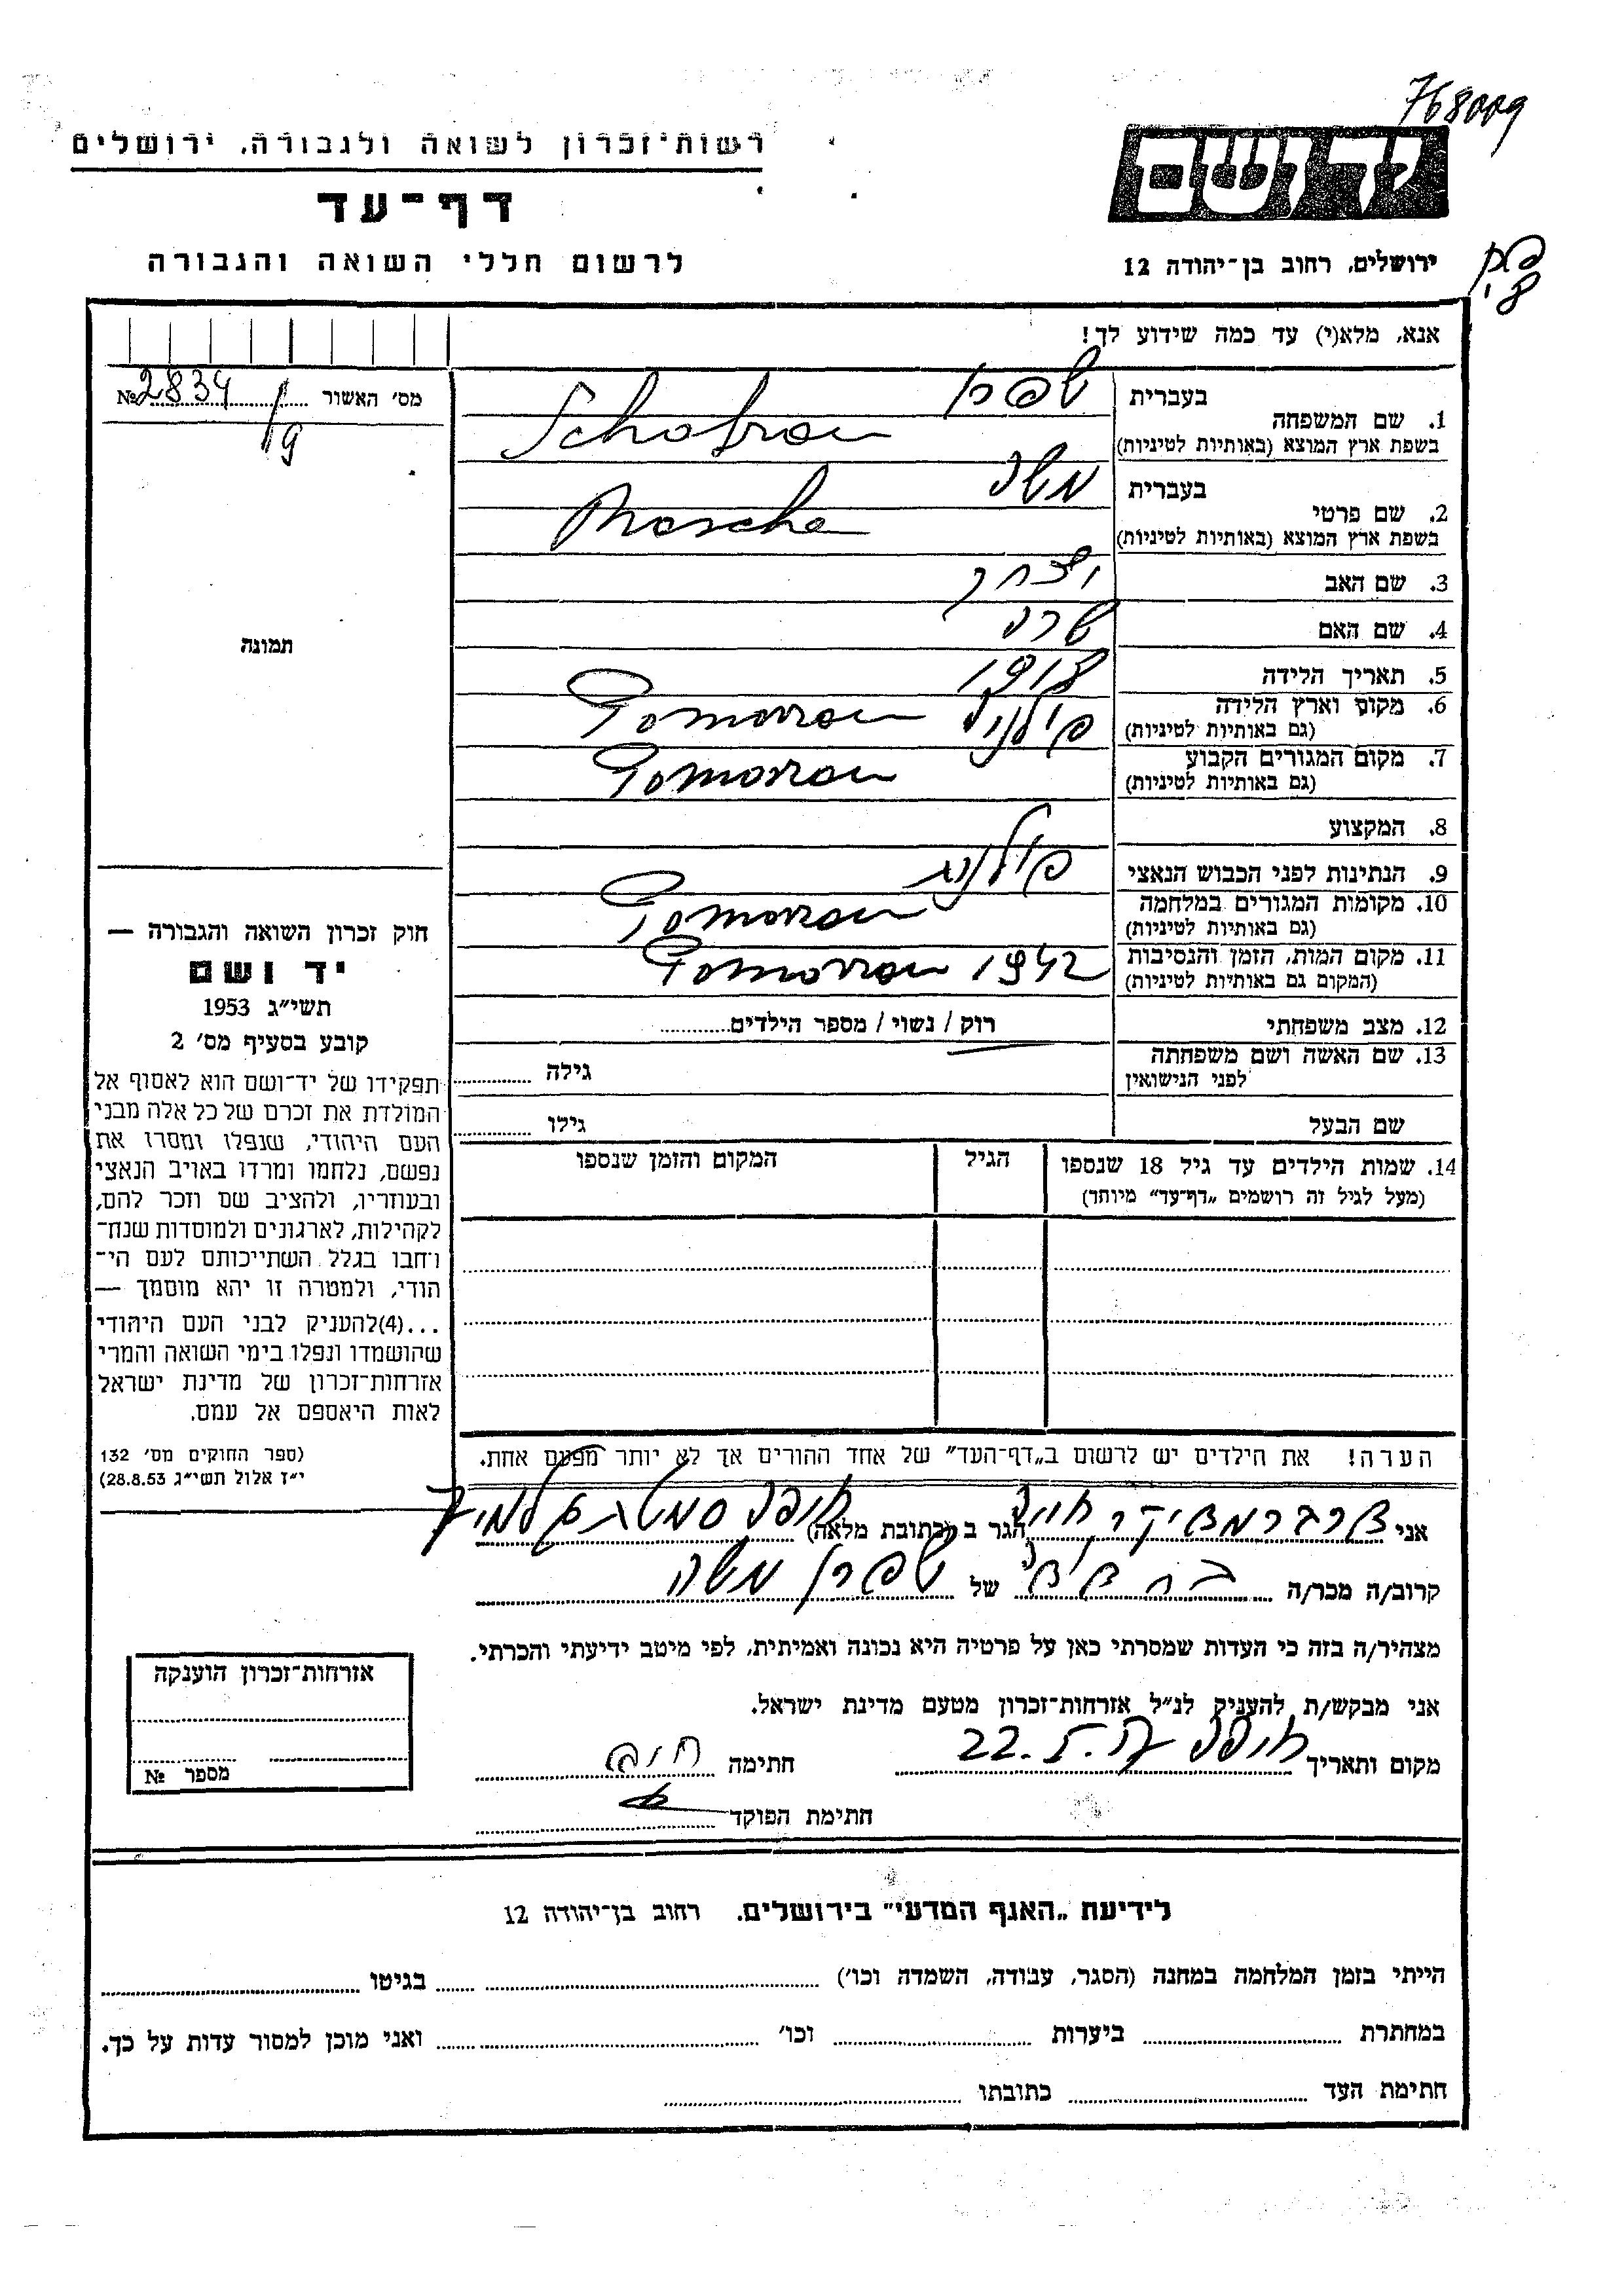 768009
רשות־זכרון לשואה ולגבורה, ירושלים
יד ושם
דף־עד
לרשום חללי השואה והגבורה
ירושלים, רחוב בן־יהודה 12
אנא, מלא(י) עד כמה שידוע לך!
מס׳ האשור № 2834
19
תמונה
חוק זכרון השואה והגבורה —
יד ושם
תשי״ג 1953
קובע בסעיף מס׳ 2
תפקידו של יד־ושם הוא לאסוף אל
המולדת את זכרם של כל אלה מבני
העם היהודי, שנפלו ומסרו את
נפשם, נלחמו ומרדו באויב הנאצי
ובעוזריו, ולהציב שם וזכר להם,
לקהילות, לארגונים ולמוסדות שנח־
רחבו בגלל השתייכותם לעם הי־
הודי, ולמטרה זו יהא מוסמך —
...(4)להעניק לבני העם היהודי
שהושמדו ונפלו בימי השואה והמרי
אזרחות־זכרון של מדינת ישראל
לאות היאספם אל עמם.
(ספר החוקים מס׳ 132
י״ז אלול תשי״ג 28.8.53)
בעברית שפרן
1. שם המשפחה
בשפת ארץ המוצא (באותיות לטיניות) Schafran
בעברית משה
2. שם פרטי
בשפת ארץ המוצא (באותיות לטיניות) Mosche
3. שם האב יצחק
4. שם האם שרה
5. תאריך הלידה 1918
6. מקום וארץ הלידה פולניה Tomorrow
(גם באותיות לטיניות)
7. מקום המגורים הקבוע Tomorrow
(גם באותיות לטיניות)
8. המקצוע
9. הנתינות לפני הכבוש הנאצי פולנית
10. מקומות המגורים במלחמה Tomorrow
(גם באותיות לטיניות)
11. מקום המות, הזמן והנסיבות 1942 Tomorrow
(המקום גם באותיות לטיניות)
12. מצב משפחתי רוק / נשוי / מספר הילדים
13. שם האשה ושם משפחתה גילה
לפני הנישואין
שם הבעל גילו
14. שמות הילדים עד גיל 18 שנספו הגיל המקום והזמן שנספו
(מעל לגיל זה רושמים „דף־עד״ מיוחד)
הערה! את הילדים יש לרשום ב„דף־העד״ של אחד ההורים אך לא יותר מפעם אחת.
אני חיה הגר ב (כתובת מלאה) חיפה
קרוב/ה מכר/ה של שפרן משה
מצהיר/ה בזה כי העדות שמסרתי כאן על פרטיה היא נכונה ואמיתית, לפי מיטב ידיעתי והכרתי.
אני מבקש/ת להעניק לנ״ל אזרחות־זכרון מטעם מדינת ישראל.
מקום ותאריך חיפה 22. חתימה
חתימת הפוקד
אזרחות־זכרון הוענקה
מספר №
לידיעת „האגף המדעי״ בירושלים. רחוב בן־יהודה 12
הייתי בזמן המלחמה במחנה (הסגר, עבודה, השמדה וכו׳) בגיטו
במחתרת ביערות וכו׳ ואני מוכן למסור עדות על כך.
חתימת העד כתובתו